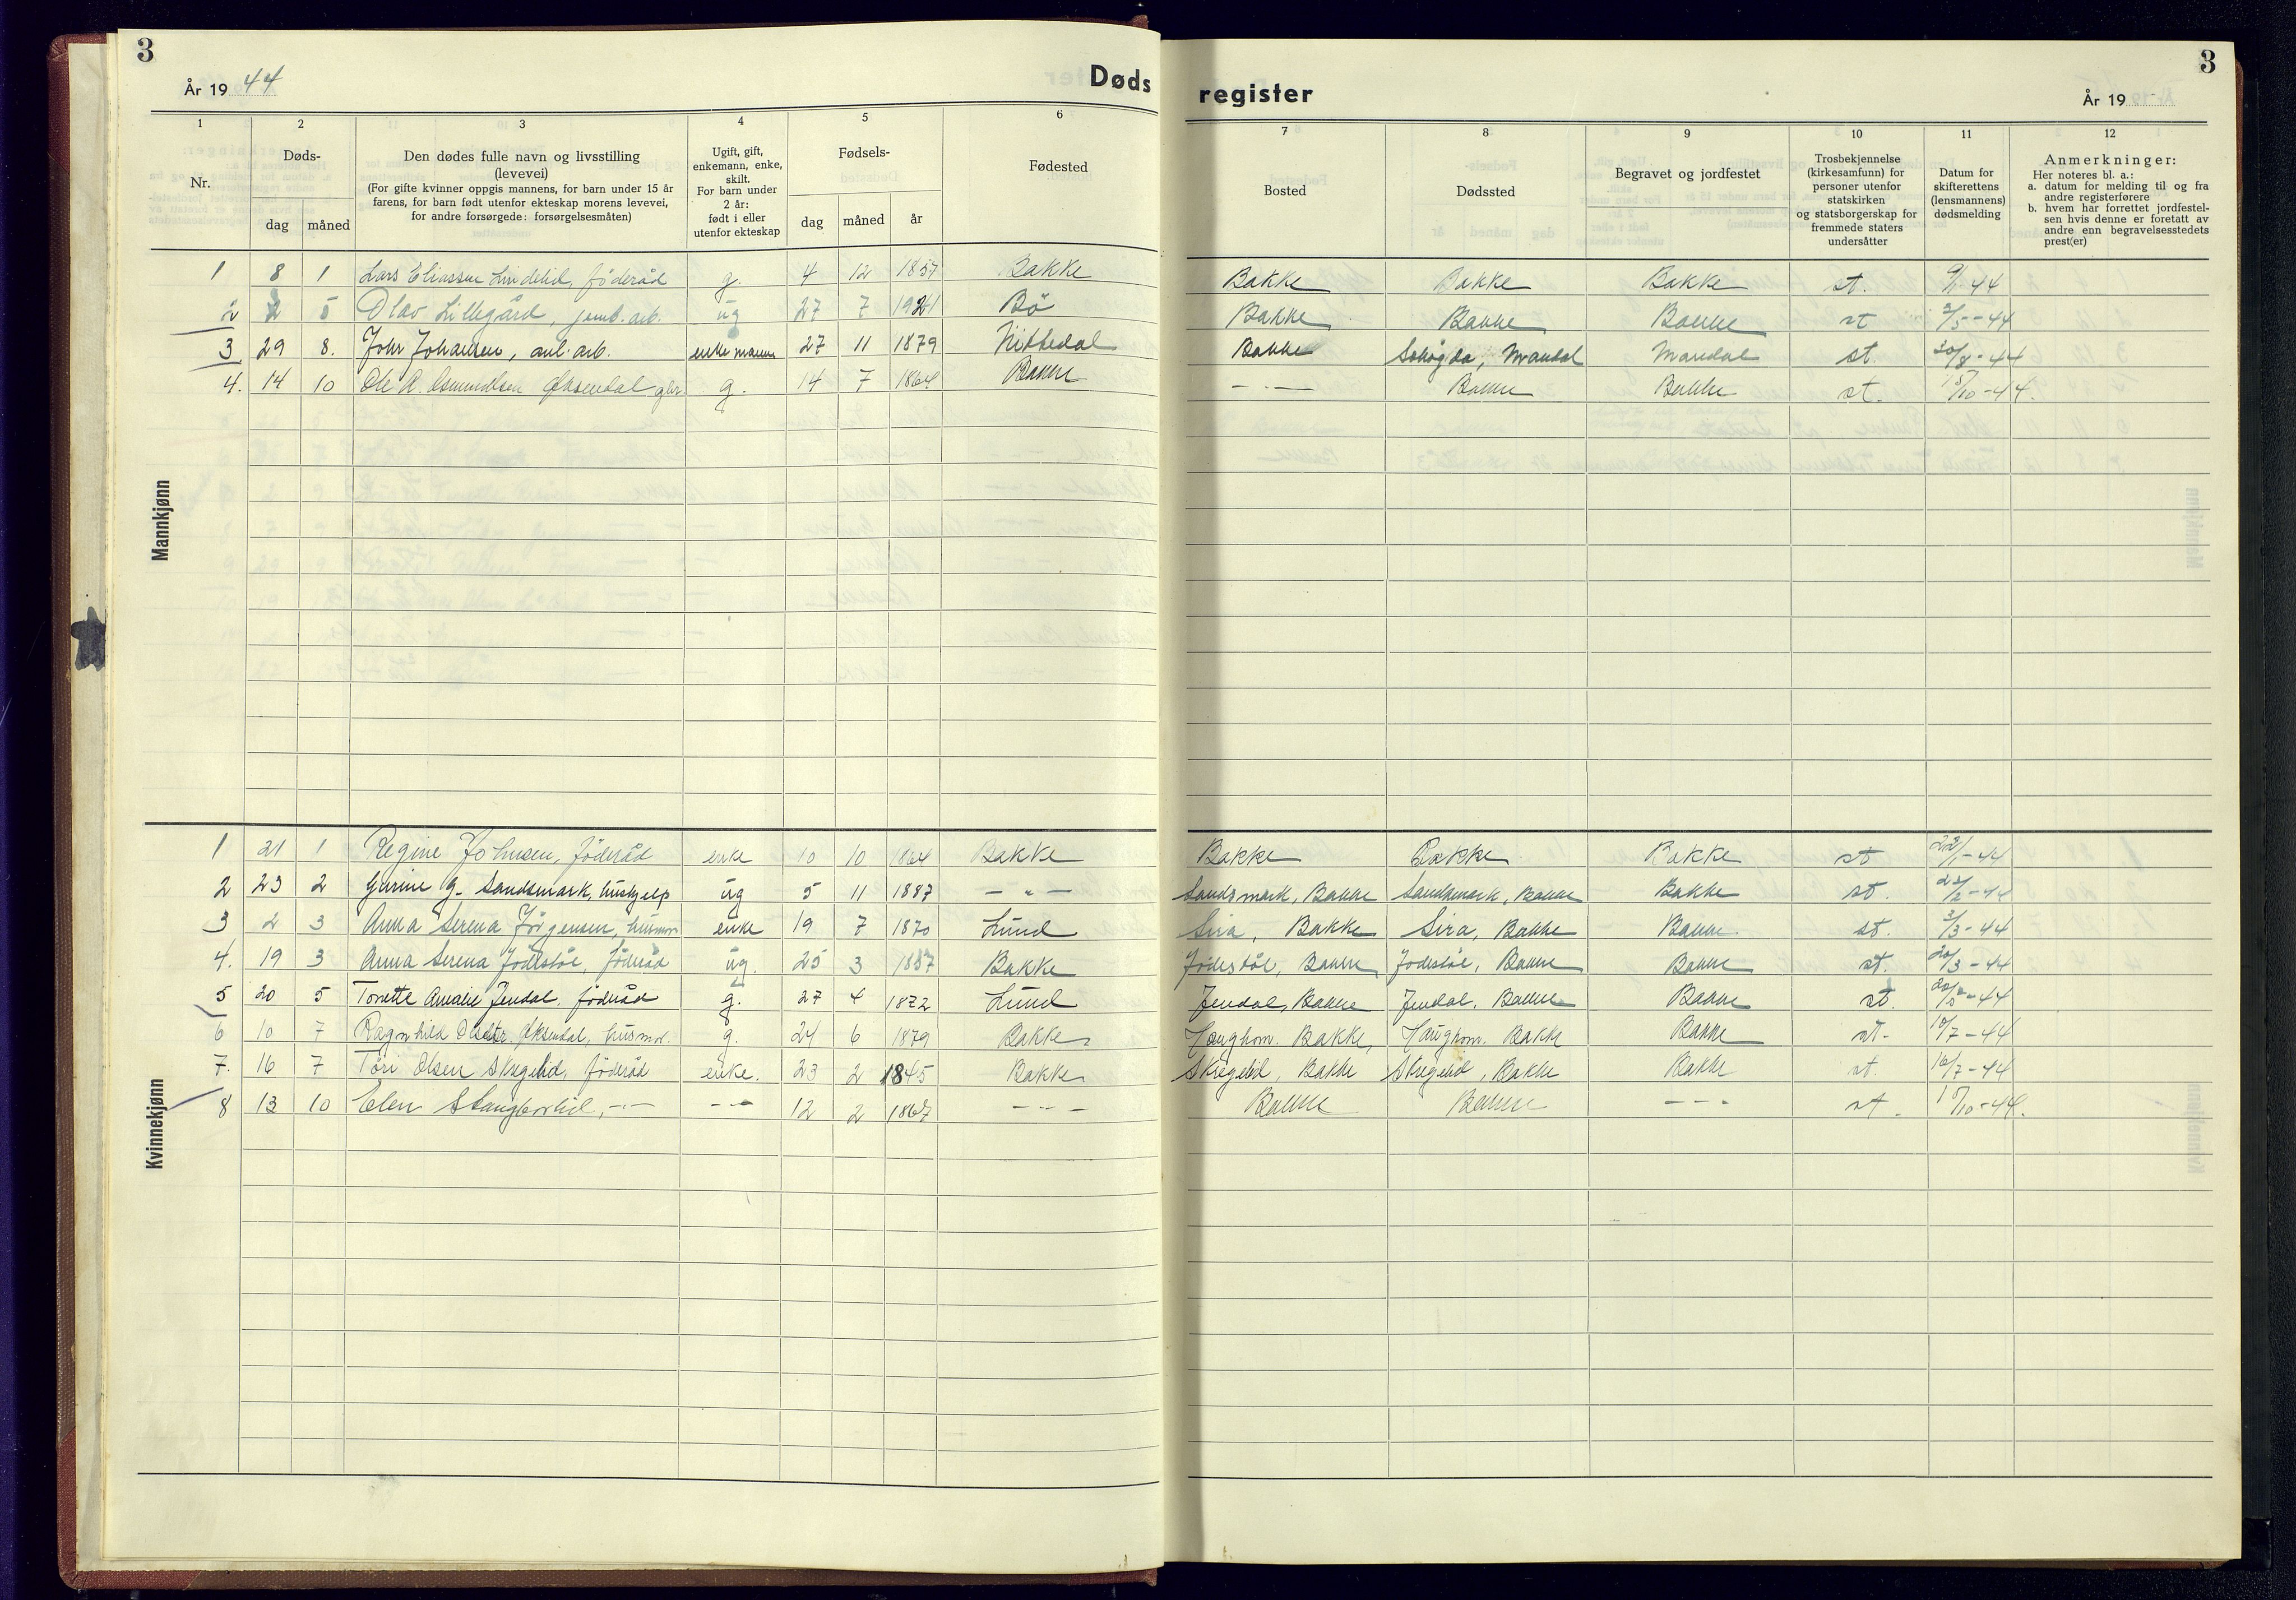 3
År 1944
Døds
1 2 3 4 5 6
Nr. Døds- Den dødes fulle navn og livsstilling (levevei) (For gifte kvinner oppgis mannens, for barn under 15 år farens, for barn født utenfor ekteskap morens levevei, for andre forsørgede: forsørgelsesmåten) Ugift, gift, enkemann, enke, skilt. For barn under 2 år: født i eller utenfor ekteskap Fødsels- Fødested
dag måned dag måned år
Mannkjønn
1 8 1 Lars Eliassen Lindelid, föderåd g. 4 12 1857 Bakke
2 2 5 Olav Lillegård, jernb. arb. ug 27 7 1921 Bö
3 29 8. Johr Johansen, anl. arb. enkemann 27 11 1879 Nittedal
4. 14 10 Ole A. Osmundsen Øksendal g. 14 7 1864 Bakke
Kvinnekjønn
1 21 1 Regine Johnsen, föderåd enke 10 10 1864 Bakke
2 23 2 Gurine G. Sandsmark, hushjelp ug 5 11 1887 — " —
3 2 3 Anna Serena Jörgensen, husmor enke 19 7 1870 Lund
4. 19 3 Anna Serena Jödestöl, föderåd ug. 25 3 1857 Bakke
5 20 5 Torette Amalie Jendal, föderåd g. 27 4 1872 Lund
6 10 7 Ragnhild Øksendal, husmor. g. 24 6 1879 Bakke
7. 16 7 Töri Olsen Skregelid, föderåd enke. 23 2 1845 Bakke
8 13 10 Elen Stangborlid, — " — — " — 12 2 1867 — " —
3
register
År 19
7 8 9 10 11 12
Bosted Dødssted Begravet og jordfestet Trosbekjennelse (kirkesamfunn) for personer utenfor statskirken og statsborgerskap for fremmede staters undersåtter Datum for skifterettens (lensmannens) dødsmelding Anmerkninger: Her noteres bl. a.: a. datum for melding til og fra andre registerførere b. hvem har forrettet jordfestelsen hvis denne er foretatt av andre enn begravelsesstedets prest(er)
Bakke Bakke Bakke st. 9/1-44
Bakke Bakke Bakke st 2/5-44
Bakke Skogda, Mandal Mandal st. 30/8-44
— " — Bakke Bakke st. 15/10-44.
Bakke Bakke Bakke st 22/1-44
Sandsmark, Bakke Sandsmark, Bakke Bakke st. 23/2-44
Sira, Bakke Sira, Bakke Bakke. st. 3/3-44
Jödestöl, Bakke Jödestöl, Bakke Bakke st. 20/3-44
Jendal, Bakke Jendal, Bakke Bakke st. 20/5-44
Haughom. Bakke, Haughom. Bakke Bakke st. 10/7-44
Skregelid, Bakke Skregelid, Bakke Bakke st. 16/7-44
Bakke Bakke — " — st. 15/10-44.